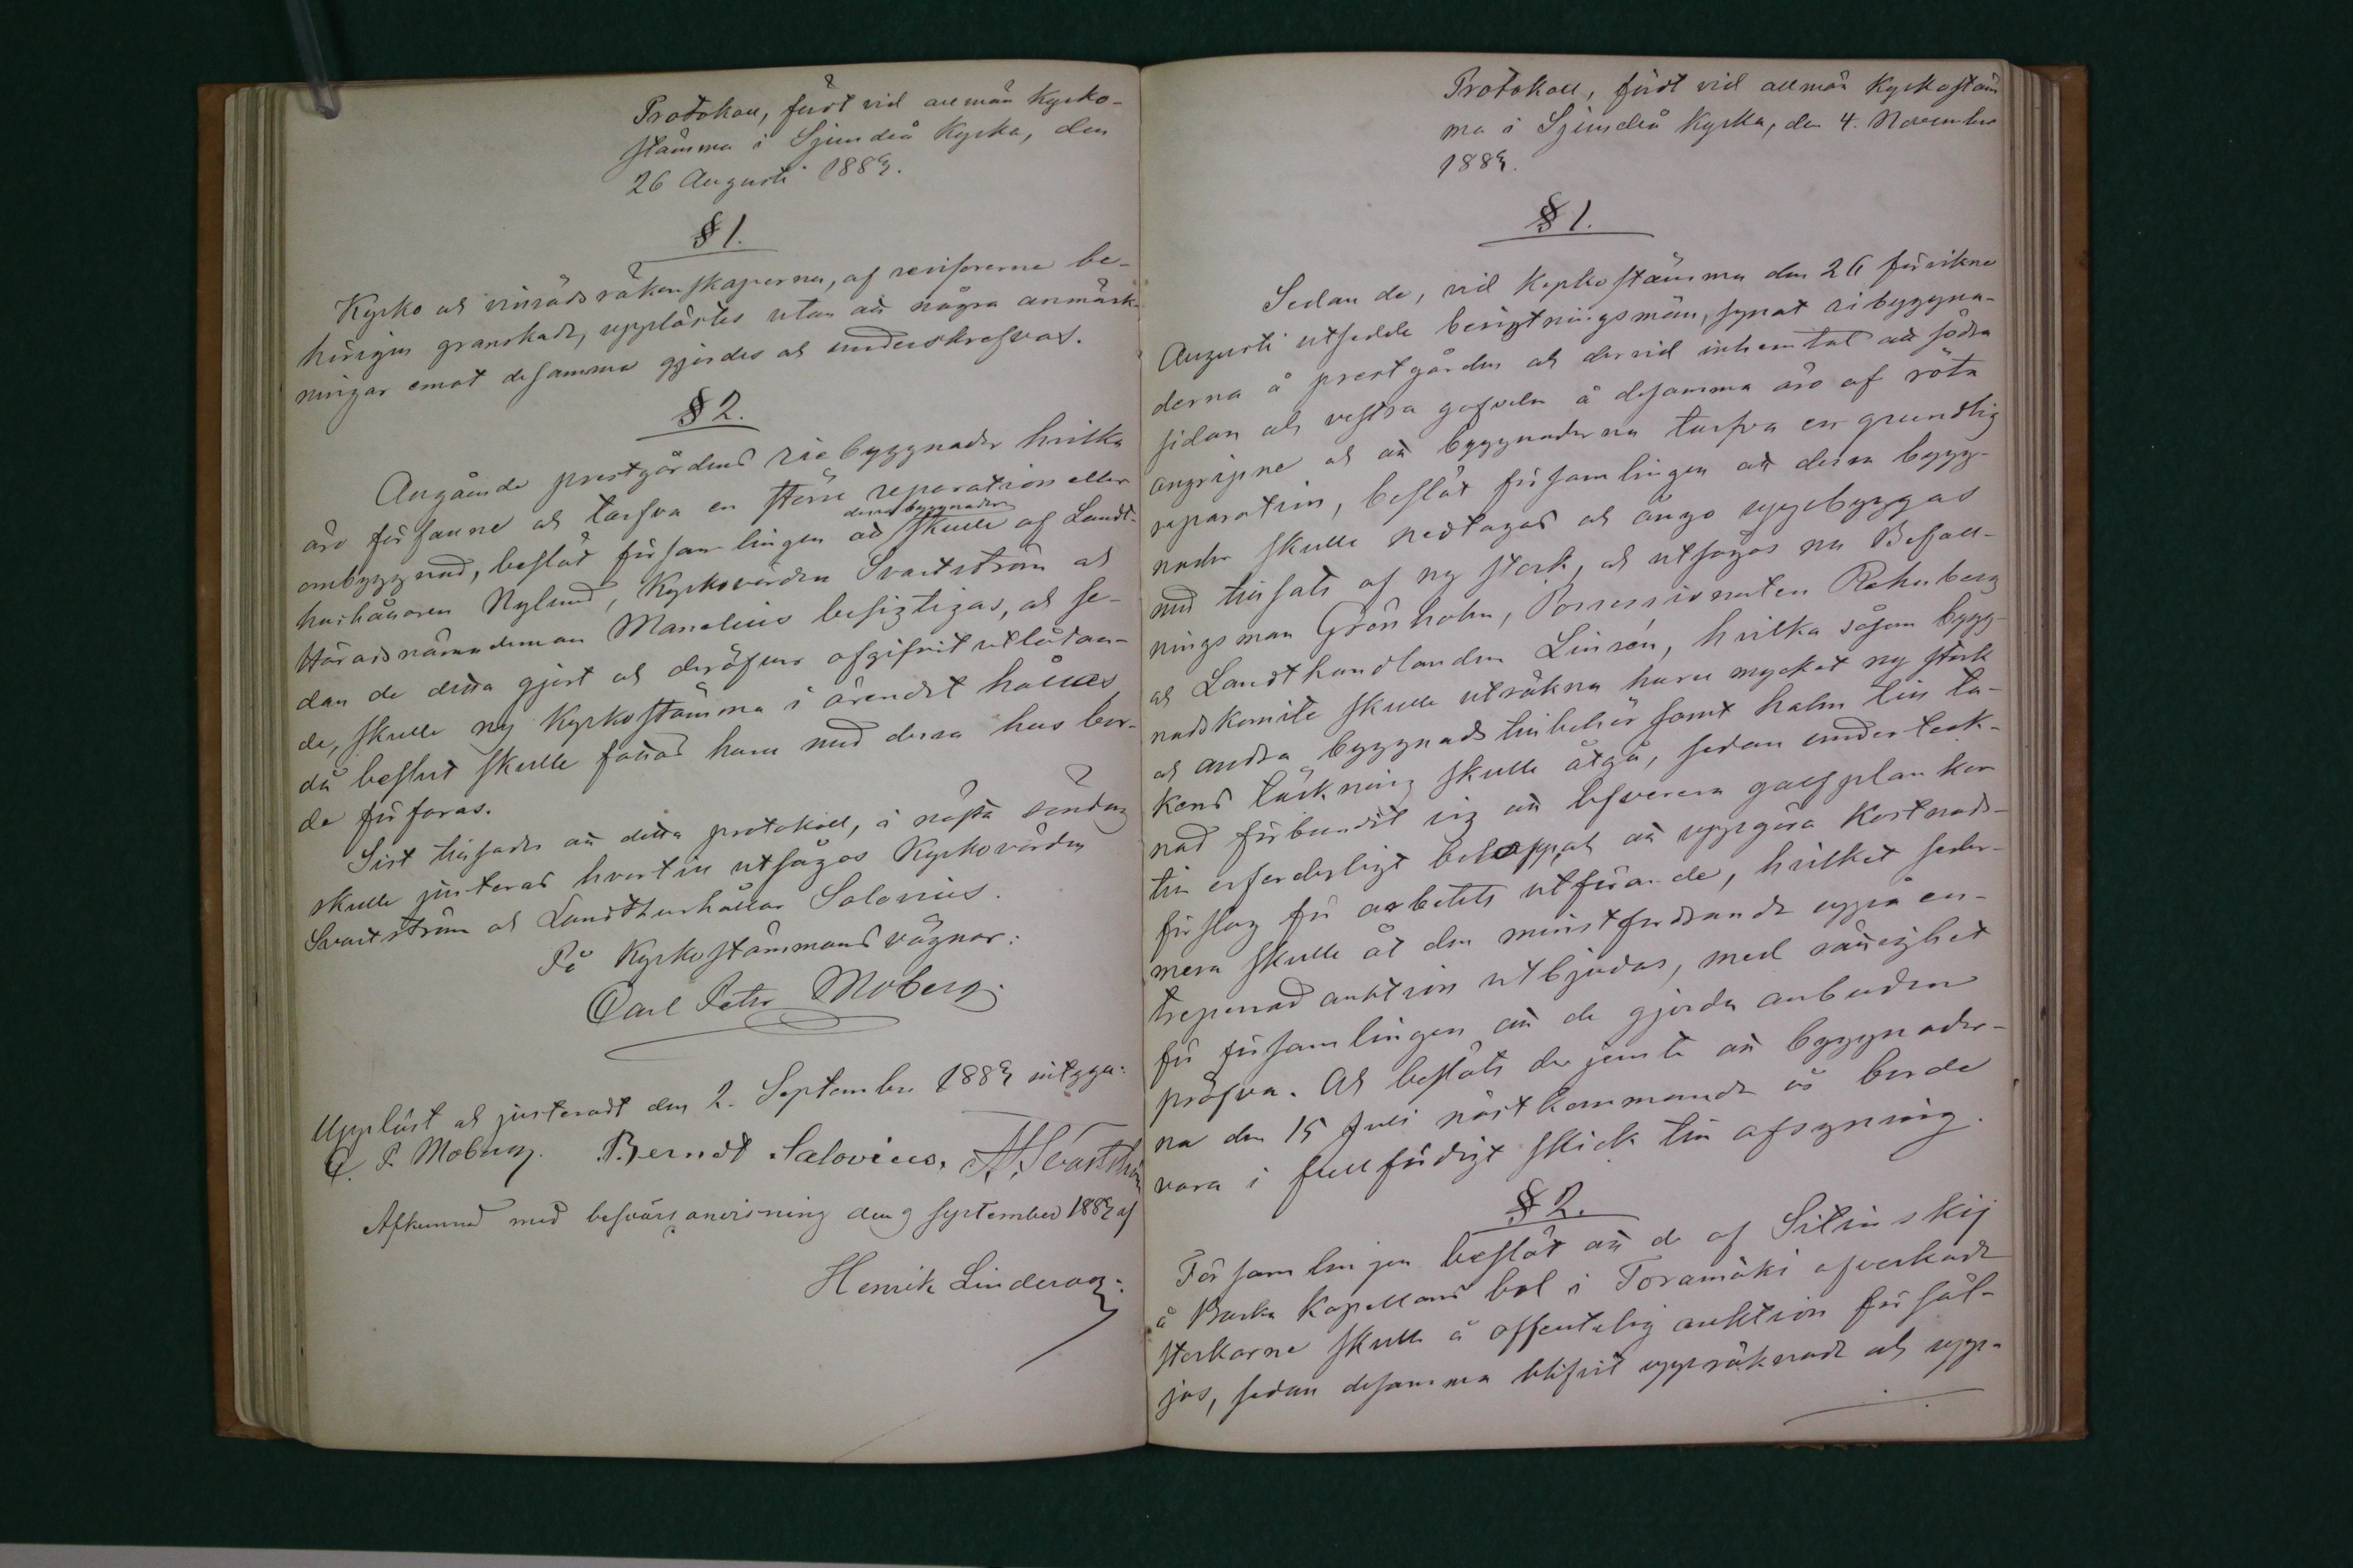 Protokoll, fördt vid allmän Kyrko-
stämma i Sjundeå Kyrka, den
26 Augusti 1883.
§ 1.
Kyrko och vinrådsräkenskaperna, af revisorerne be-
hörigen granskade, upplästes utan att några anmärk-
ningar emot desamma gjordes och underskrefvos.
§ 2.
Angående prestgårdens riebyggnader hvilka
äro förfallne och tarfva en större reparation eller
ombyggnad, beslöt församlingen att dessa byggnader skulle af Landt-
hushållaren Nylund, Kyrkovärden Svartström och
Häradsnämndeman Manelius besigtigas, och se-
dan de detta gjort och deröfver afgifvit utlåtan-
de, skulle ny Kyrkostämma i ärendet hållas
då beslut skulle fattas huru med dessa hus bor-
de förfaras.
Sist tillsades att detta protokoll, i nästa söndag
skulle justeras hvartill utsågos Kyrkovärden
Svartström och Landthushållar Salovius.
På Kyrkostämmans vägnar:
Carl Peter Moberg.
Uppläst och justeradt den 2. September 1883 intyga:
C. P. Moberg. Berndt Salovius. A. Svartström
Afkunnad med besvärsanvisning den 9 september 1883 af
Henrik Linderoos.
Protokoll, fördt vid allmän Kyrkostäm
ma i Sjundeå Kyrka, den 4. November
1883.
§ 1.
Sedan de, vid Kyrkostämma den 26 förvikne
Augusti utsedde besigtningsmän, synat riebyggna-
derna å prestgården och dervid inhemtat att södra
sidan och vestra gafveln å desamma äro af röta
angripne och att byggnaderna tarfva en grundlig
reparation, beslöt församlingen att dessa bygg-
nader skulle nedtagas och ånyo uppbyggas
med tillsats af ny stock, och utsågos nu Befall-
ningsman Grönholm, Possessionaten Rehnberg
och Landthandlanden Linsén, hvilka såsom bygg-
nadskomite skulle uträkna huru mycket ny stock
och andra byggnadstillbehör samt halm till ta-
kens täckning skulle åtgå, sedan underteck-
nad förbundit sig att leverera golfplankor
till erforderligt belopp, och att uppgöra Kostnads-
förslag för arbetets utförande, hvilket seder-
mera skulle åt den minstfordrande uppå en-
treprenad auktion utbjudas, med rättighet
för församlingen att de gjorda anbuden
pröfva. Och beslöts derjemte att byggnader-
na den 15 Juli nästkommande år borde
vara i fullfärdigt skick till afsyning.
§ 2.
Församlingen beslöt att de af Sitinskij
å Backa Kapellans bol i Toramäki afverkade
stockarne skulle å offentelig auktion försäl-
jas, sedan desamma blifvit uppräknade och upp-